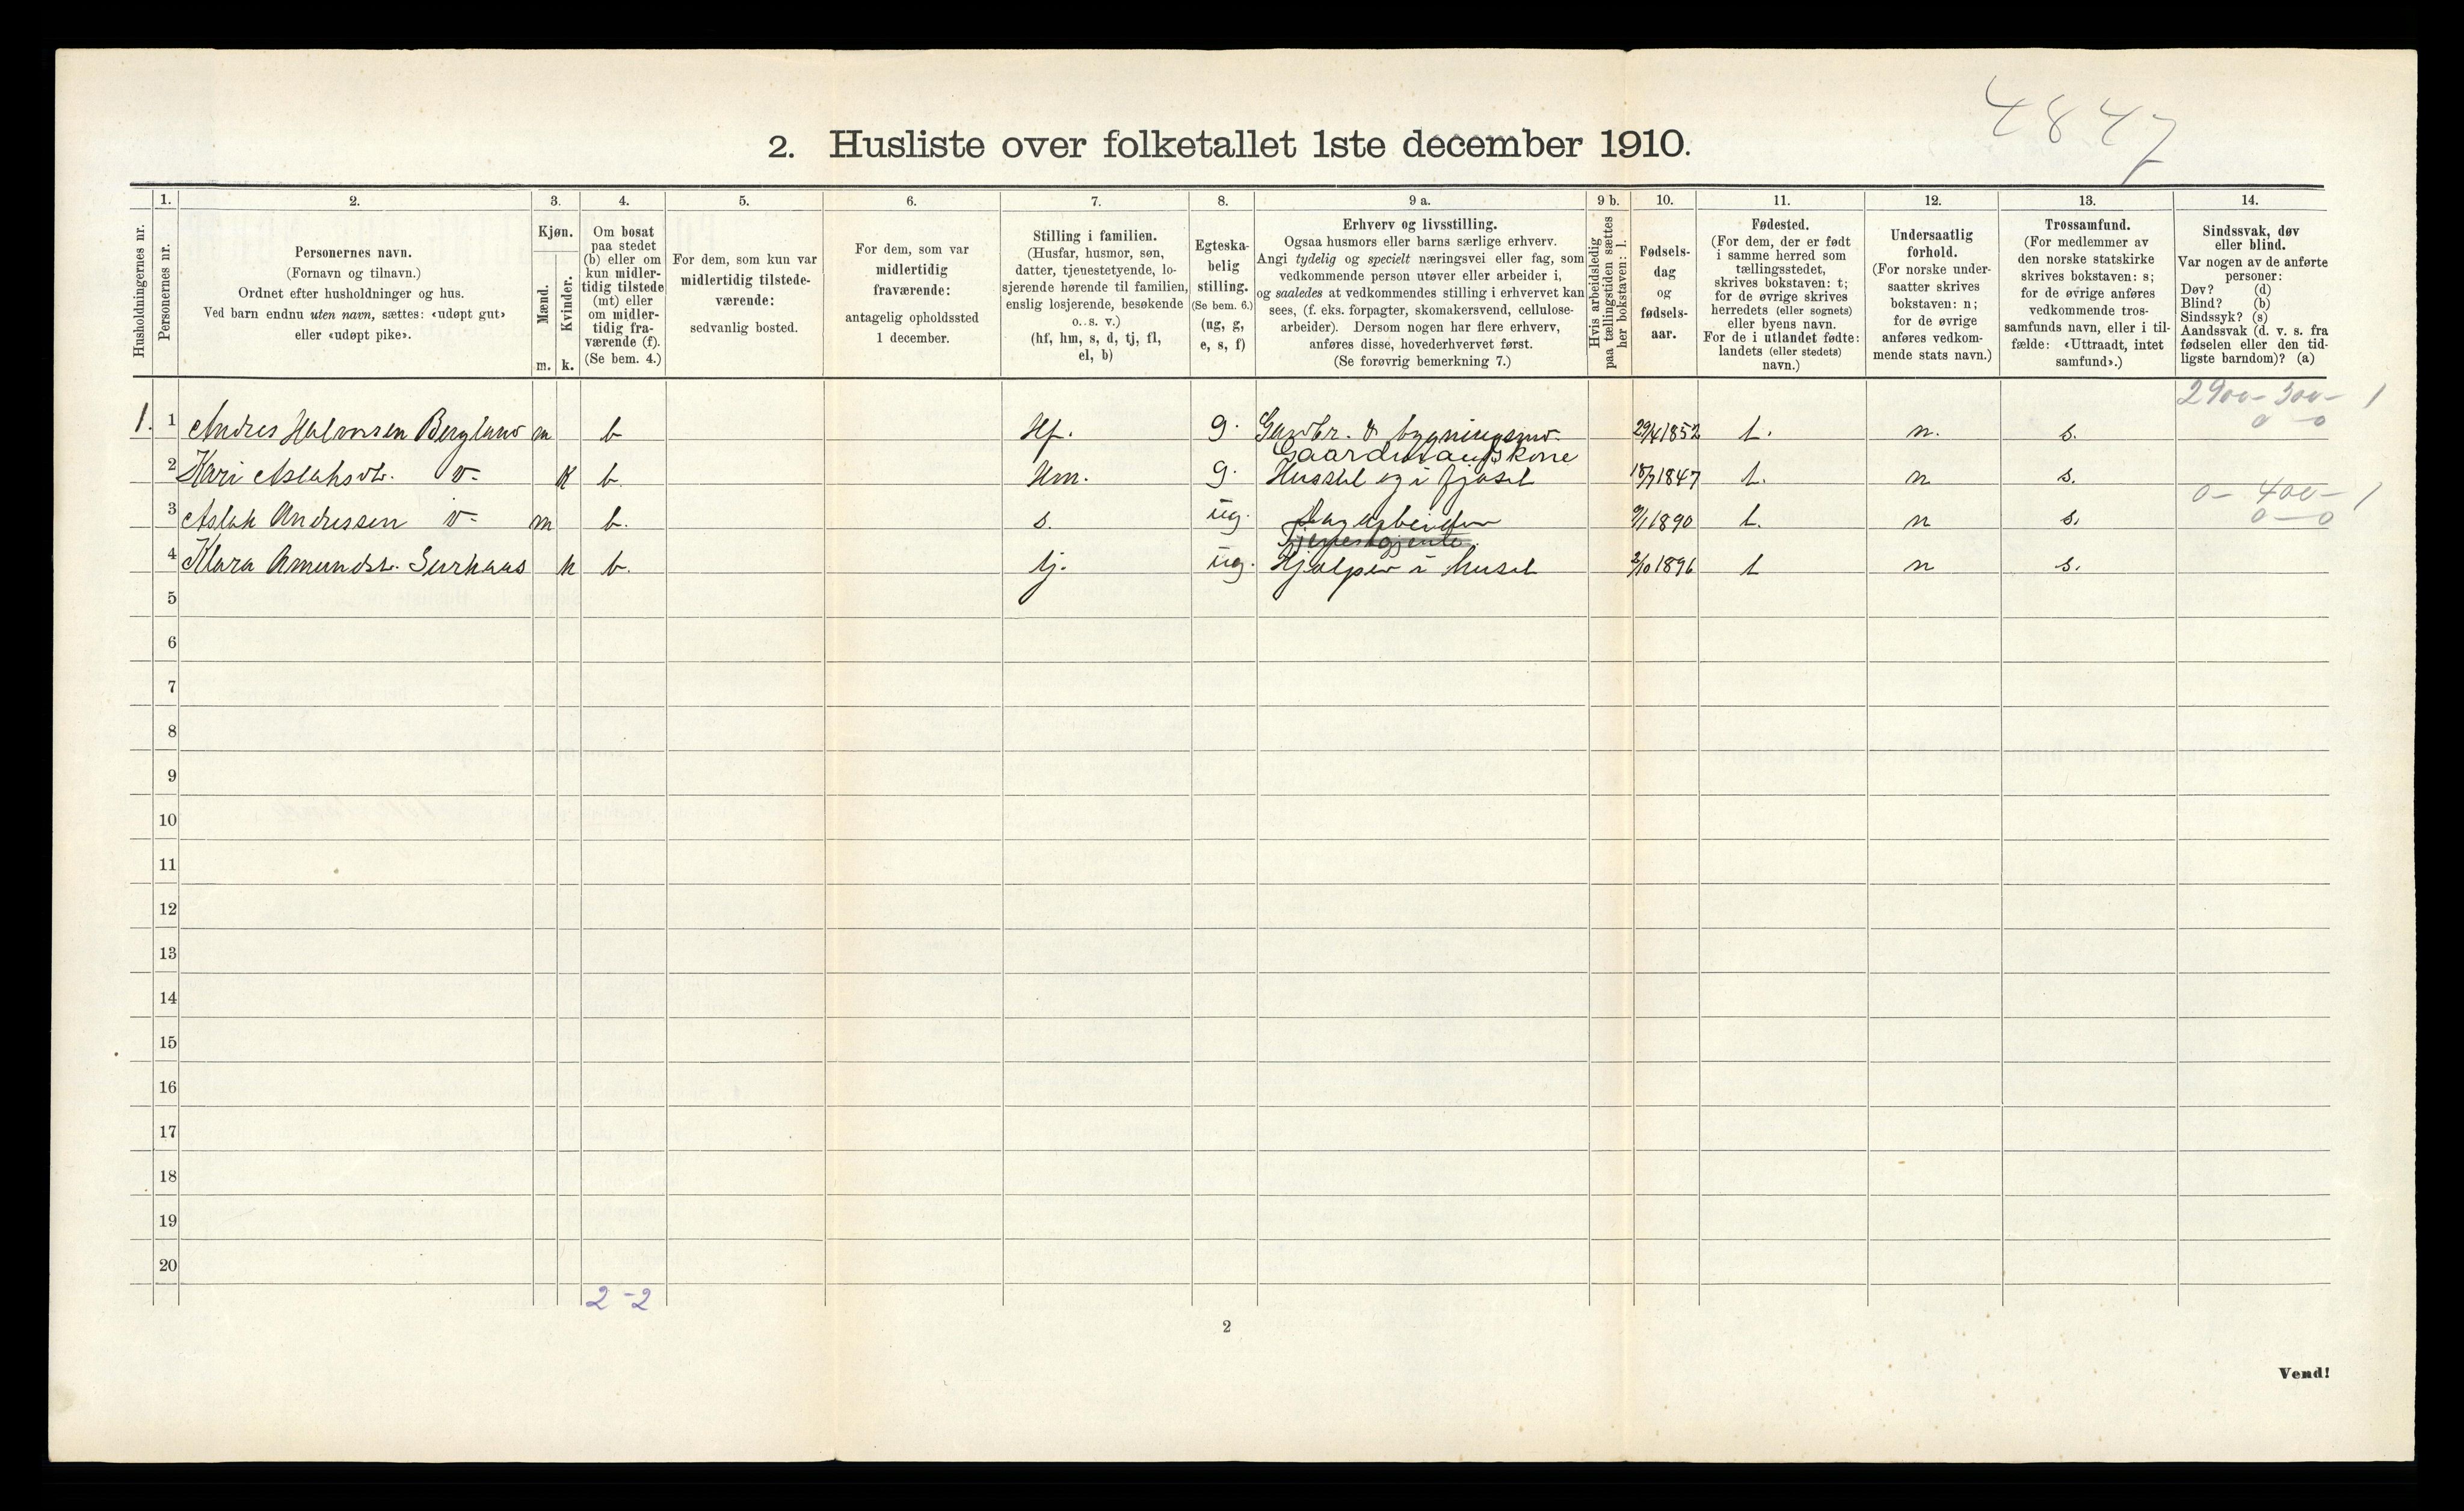 4847
2. Husliste over folketallet 1ste december 1910.
Husholdningernes nr.
1.
Personernes nr.
2.
Personernes navn.
(Fornavn og tilnavn.)
Ordnet efter husholdninger og hus.
Ved barn endnu uten navn, sættes: «udøpt gut»
eller «udøpt pike».
3.
Kjøn.
Mænd.
Kvinder.
m. k.
4.
Om bosat
paa stedet
(b) eller om
kun midler-
tidig tilstede
(mt) eller
om midler-
tidig fra-
værende (f).
(Se bem. 4.)
5.
For dem, som kun var
midlertidig tilstede-
værende:
sedvanlig bosted.
6.
For dem, som var
midlertidig
fraværende:
antagelig opholdssted
1 december.
7.
Stilling i familien.
(Husfar, husmor, søn,
datter, tjenestetyende, lo-
sjerende hørende til familien,
enslig losjerende, besøkende
o. s. v.)
(hf, hm, s, d, tj, fl,
el, b)
8.
Egteska-
belig
stilling.
(Se bem. 6.)
(ug, g,
e, s, f)
9 a.
Erhverv og livsstilling.
Ogsaa husmors eller barns særlige erhverv.
Angi tydelig og specielt næringsvei eller fag, som
vedkommende person utøver eller arbeider i,
og saaledes at vedkommendes stilling i erhvervet kan
sees, (f. eks. forpagter, skomakersvend, cellulose-
arbeider). Dersom nogen har flere erhverv,
anføres disse, hovederhvervet først.
(Se forøvrig bemerkning 7.)
9 b.
Hvis arbeidsledig
paa tællingstiden sættes
her bokstaven: l.
10.
Fødsels-
dag
og
fødsels-
aar.
11.
Fødested.
(For dem, der er født
i samme herred som
tællingsstedet,
skrives bokstaven: t;
for de øvrige skrives
herredets (eller sognets)
eller byens navn.
For de i utlandet fødte:
landets (eller stedets)
navn.)
12.
Undersaatlig
forhold.
(For norske under-
saatter skrives
bokstaven: n;
for de øvrige
anføres vedkom-
mende stats navn.)
13.
Trossamfund.
(For medlemmer av
den norske statskirke
skrives bokstaven: s;
for de øvrige anføres
vedkommende tros-
samfunds navn, eller i til-
fælde: «Uttraadt, intet
samfund».)
14.
Sindssvak, døv
eller blind.
Var nogen av de anførte
personer:
Døv? (d)
Blind? (b)
Sindssyk? (s)
Aandssvak (d. v. s. fra
fødselen eller den tid-
ligste barndom)? (a)
2900-300- 1
0 - 0
1. 1 Andres Halvorsen Bergland m b Hf. g. Gardbr. & bygningsmd. 29/4 1852 t. n. s.
Gaardmandskone
2 Kari Aslaksdt. v- K b Hm. g. Husstel og i fjøset 1847 t. n s.
0- 400- 1
0-0
3 Aslak Andressen v- m b. s. ug. Dagarbeider 9/1 1890 t. n s.
Tjenestejente
4 Klara Amundst. k b. tj. ug. Hjælper i huset 2/10 1896 t n s.
5
6
7
8
9
10
11
12
13
14
15
16
17
18
19
20
2-2
2
Vend!